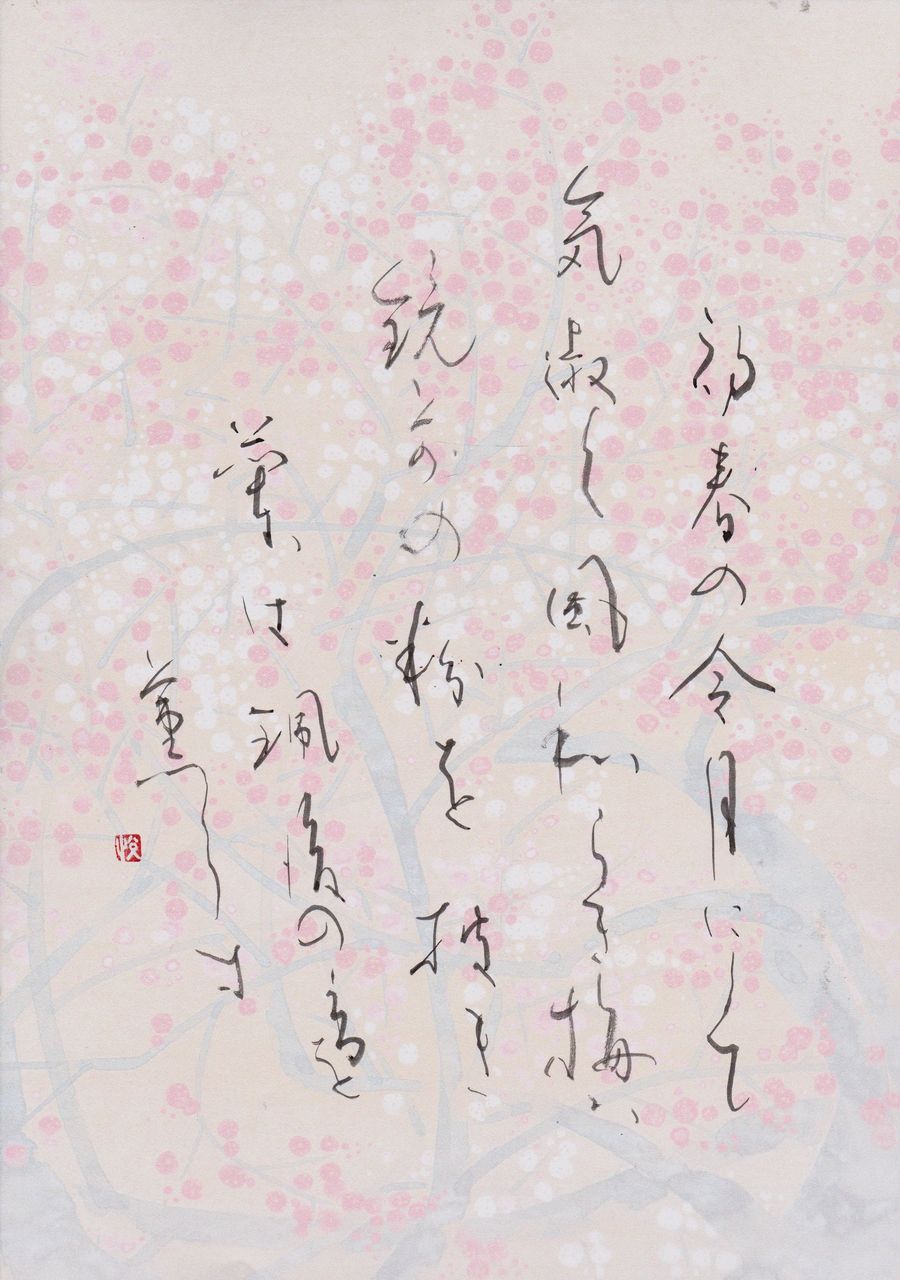 初春の令月にして
気淑く風和らぎ梅ハ
鏡前の粉を披き
蘭は珮後の香を
薫らす